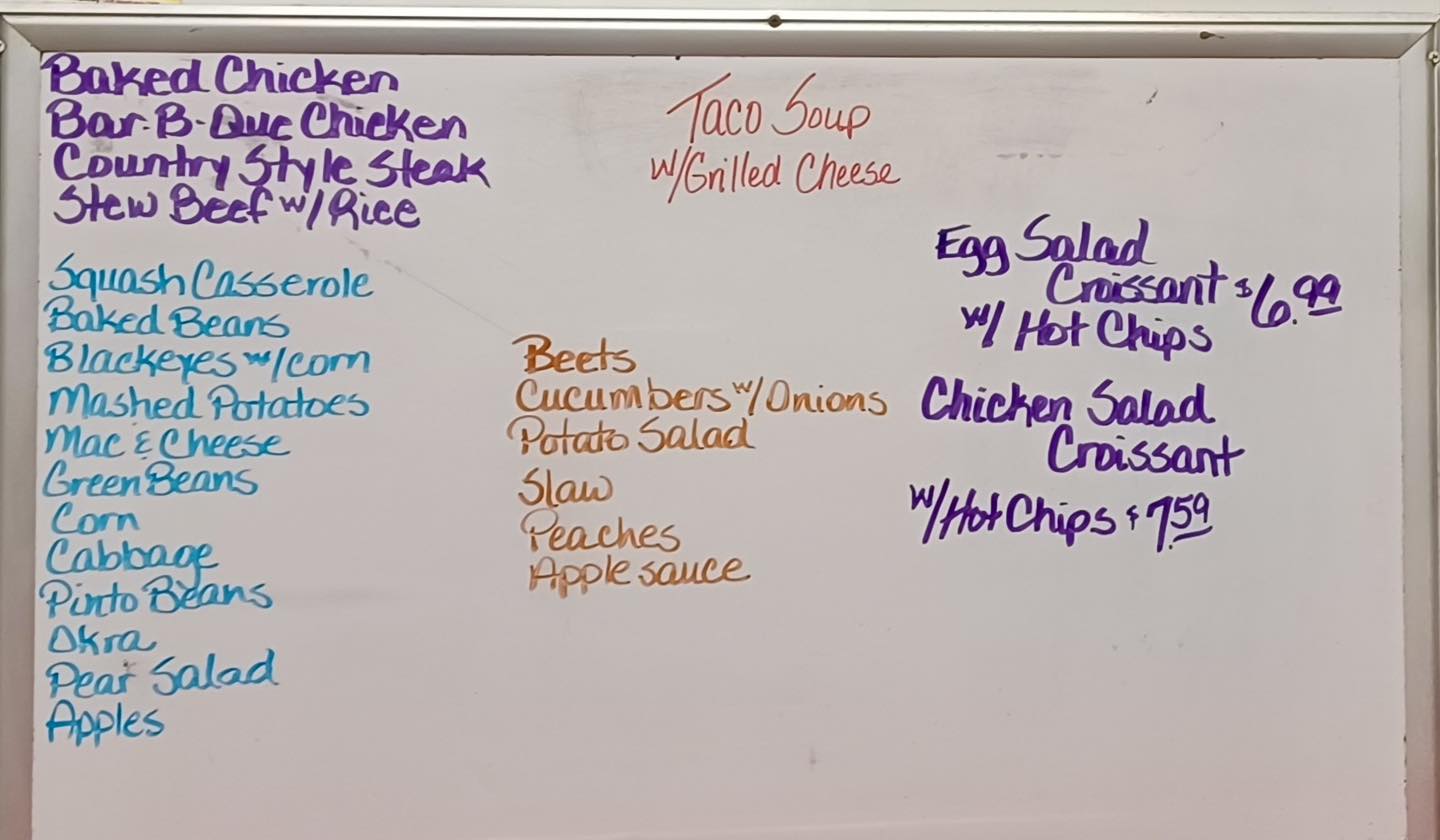 Baked Chicken
Bar-B-Que Chicken
Country Style Steak
Stew Beef w/Rice
Squash Casserole
Baked Beans
Blackeyes w/corn
Mashed Potatoes
Mac & Cheese
Green Beans
Corn
Cabbage
Pinto Beans
Okra
Pear Salad
Apples
Taco Soup
w/Grilled Cheese
Beets
Cucumbers w/Onions
Potato Salad
Slaw
Peaches
Applesauce
Egg Salad
Croissant $6.99
w/ Hot Chips
Chicken Salad
Croissant
w/Hot Chips $7.59